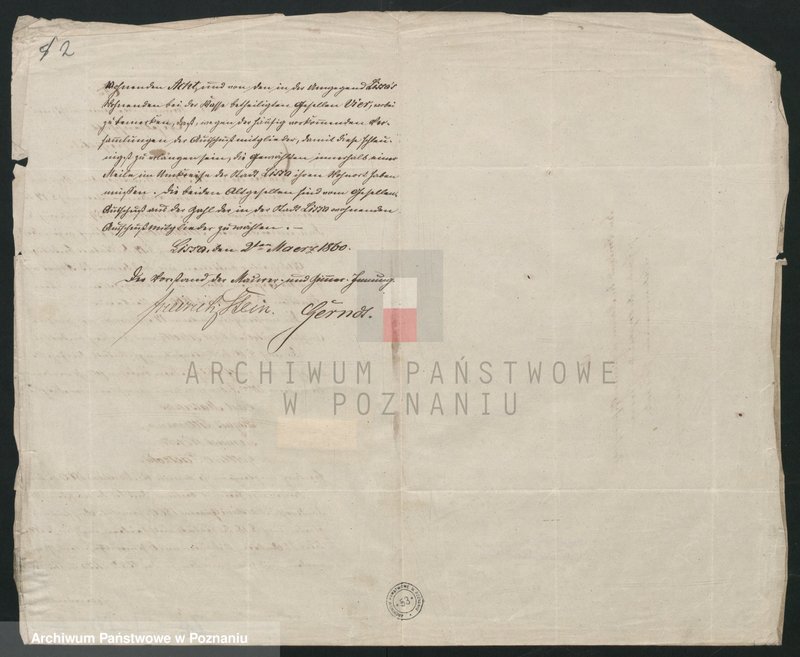 2
wohnenden Acht, und von den in der Umgegend Lissa's
wohnenden bei der Kasse betheiligten Gesellen Vier, wobei
zu bemerken, daß, wegen der häufig vorkommenden Ver-
sammlungen der Ausschußmitglieder, damit diese schleu-
nigst zu erlangen sein, die Gewählten innerhalb einer
Meile im Umkreise der Stadt Lissa ihren Wohnort haben
müssen. Die beiden Altgesellen sind vom Gesellen-
Ausschuß aus der Zahl der in der Stadt Lissa wohnenden
Ausschußmitglieder zu wählen. –
Lissa, den 2ten Maerz 1860.
Der Vorstand der Maurer- und Zimmer-Innung.
Friedrich Stein. Gerndt.
ARCHIWUM PAŃSTWOWE
W POZNANIU
ARCHIWUM PAŃSTWOWE W POZNANIU
53
Archiwum Państwowe w Poznaniu